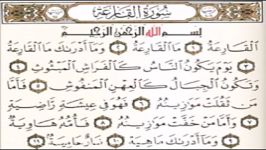 سورة القارعة
بسم الله الرحمن الرحيم
القارعة ١ ما القارعة ٢ وما أدرىك ما القارعة ٣
يوم يكون الناس كالفراش المبثوث ٤
وتكون الجبال كالعهن المنفوش ٥ فأما
من ثقلت موازينه ٦ فهو في عيشة راضية
٧ وأما من خفت موازينه ٨ فأمه هاوية
٩ وما أدرىك ما هيه ١٠ نار حامية ١١